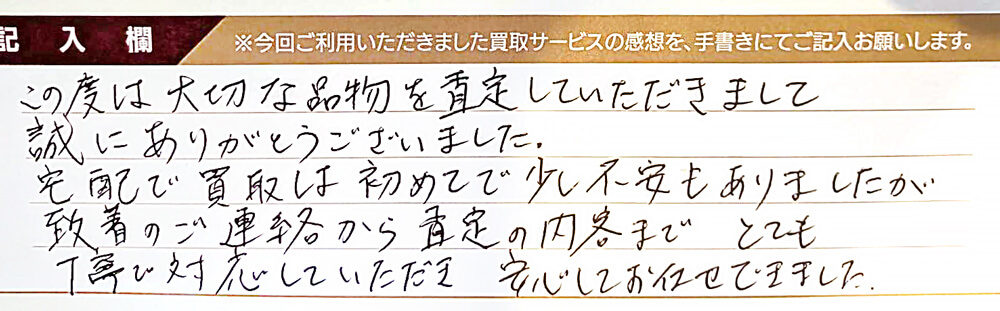 記入欄
※今回ご利用いただきました買取サービスの感想を、手書きにてご記入お願いします。
この度は大切な品物を査定していただきまして
誠にありがとうございました。
宅配で買取は初めてで少し不安もありましたが
致着のご連絡から査定の内容まで とても
丁寧で対応していただき 安心してお任せできました。